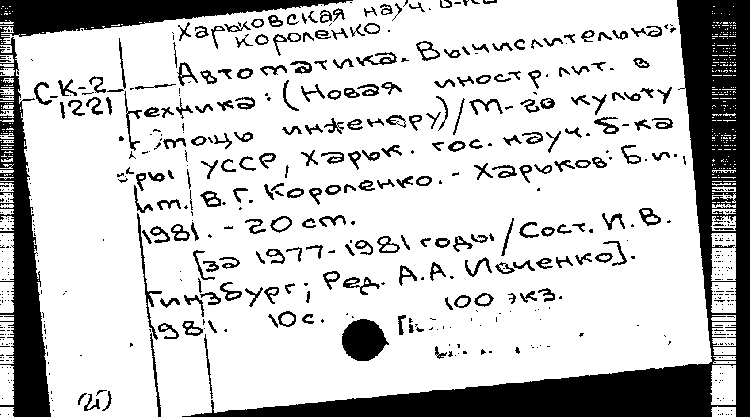 Харьковская науч. б-ка
Короленко.
С-К-2
1221
Автоматика. Вычислительная
техника: (Новая иностр. лит. в
помощь инженеру) / М-во культу
ры УССР, Харьк. гос. науч. б-ка
им. В. Г. Короленко. - Харьков: Б.и.,
1981. - 20 см.
[за 1977-1981 годы / Сост. И. В.
Гинзбург; Ред. А. А. Ивченко].
1981. 10с. 100 экз.
20